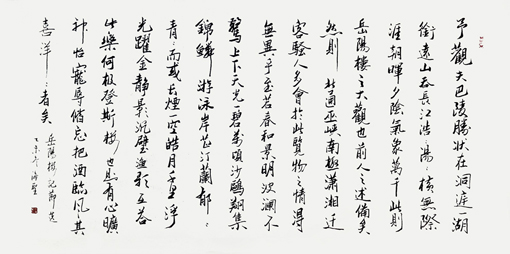 予觀夫巴陵勝狀在洞庭一湖
銜遠山吞長江浩々湯々橫無際
涯朝暉夕陰氣象萬千此則
岳陽樓之大觀也前人之述備矣
然則北通巫峽南極瀟湘遷
客騷人多會於此覽物之情得
無異乎至若春和景明波瀾不
驚上下天光一碧萬頃沙鷗翔集
錦鱗游泳岸芷汀蘭郁々
青々而或長煙一空皓月千里浮
光躍金靜影沉璧漁歌互答
此樂何極登斯樓也則有心曠
神怡寵辱偕忘把酒臨風其
喜洋々者矣
岳陽樓記節選
乙未冬